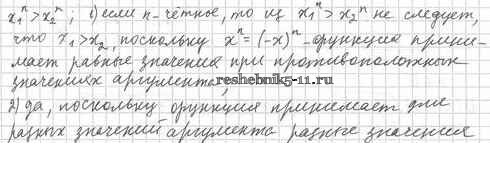 x₁ⁿ > x₂ⁿ; 1) если n-чётные, то из x₁ⁿ > x₂ⁿ не следует,
что x₁ > x₂, поскольку xⁿ = (-x)ⁿ - функция прини-
мает равные значения при противоположных
значениях аргумента;
reshebnik5-11.ru
2) да, поскольку функция принимает для
разных значений аргумента разные значения